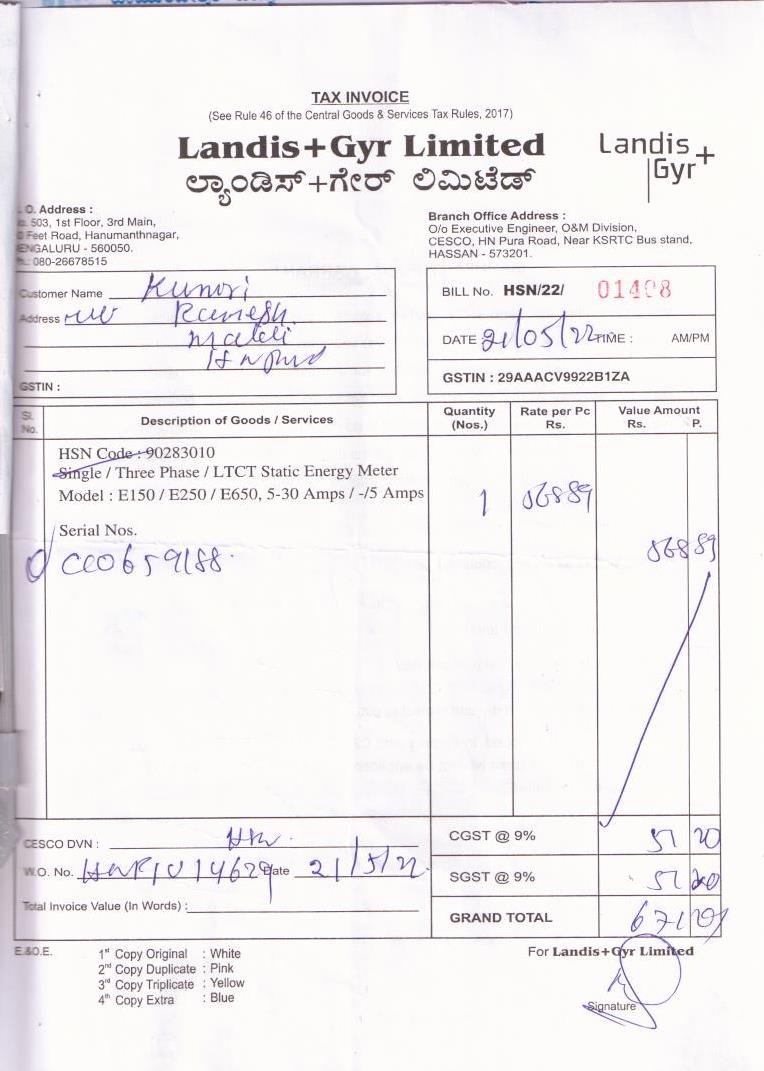 TAX INVOICE
(See Rule 46 of the Central Goods & Services Tax Rules, 2017)
Landis+Gyr Limited
ಲ್ಯಾಂಡಿಸ್+ಗೇರ್ ಲಿಮಿಟೆಡ್
Landis
Gyr+
.O. Address :
503, 1st Floor, 3rd Main,
Feet Road, Hanumanthnagar,
ENGALURU - 560050.
080-26678515
Branch Office Address :
O/o Executive Engineer, O&M Division,
CESCO, HN Pura Road, Near KSRTC Bus stand,
HASSAN - 573201.
Customer Name
Address Ramesh
GSTIN :
BILL No. HSN/22/ 01408
DATE 21/05/22 TIME : AM/PM
GSTIN : 29AAACV9922B1ZA
Sl. No. Description of Goods / Services Quantity (Nos.) Rate per Pc Rs. Value Amount Rs. P.
HSN Code : 90283010
Single / Three Phase / LTCT Static Energy Meter
Model : E150 / E250 / E650, 5-30 Amps / -/5 Amps 1 568 89
Serial Nos.
568 89
CESCO DVN :
W.O. No. Date 21/5/22
Total Invoice Value (In Words) :
CGST @ 9% 51 20
SGST @ 9% 51 20
GRAND TOTAL 671
E.&O.E.
1st Copy Original : White
2nd Copy Duplicate : Pink
3rd Copy Triplicate : Yellow
4th Copy Extra : Blue
For Landis+Gyr Limited
Signature